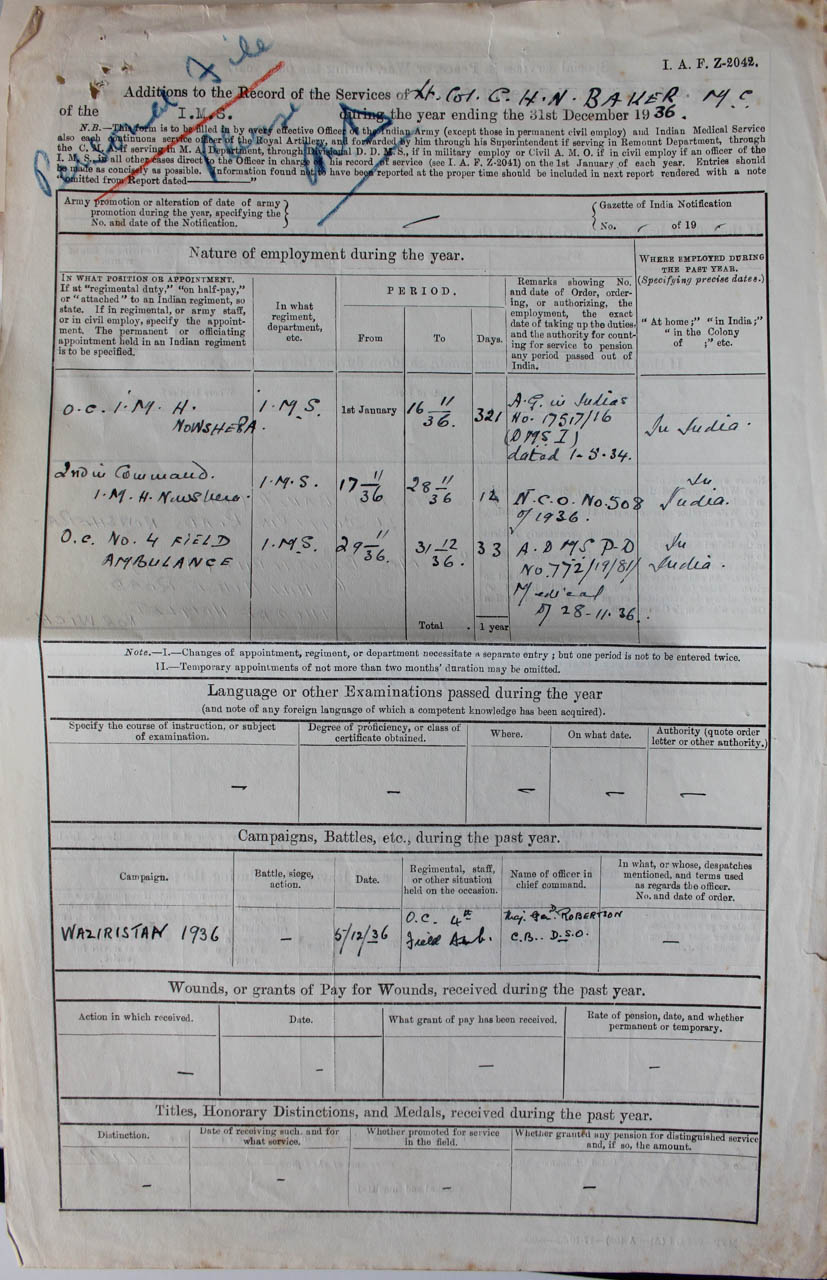 Personal File
I. A. F. Z-2042.
Additions to the Record of the Services of Lt. Col. C. H. N. BAKER M.C.
of the I.M.S. during the year ending the 31st December 1936.
N.B.—This form is to be filled in by every effective Officer of the Indian Army (except those in permanent civil employ) and Indian Medical Service
also each continuous service officer of the Royal Artillery, and forwarded by him through his Superintendent if serving in Remount Department, through
the C. if serving in M. A. Department, through Divisional D. D. M. S., if in military employ or Civil A. M. O. if in civil employ if an officer of the
I. M. S., in all other cases direct to the Officer in charge of his record of service (see I. A. F. Z-2041) on the 1st January of each year. Entries should
be made as concisely as possible. Information found not to have been reported at the proper time should be included in next report rendered with a note
"omitted from Report dated— "
Army promotion or alteration of date of army
promotion during the year, specifying the
No. and date of the Notification.
—
Gazette of India Notification
No. of 19
Nature of employment during the year.
WHERE EMPLOYED DURING
THE PAST YEAR.
(Specifying precise dates.)
"At home;" "in India;"
"in the Colony
of ;" etc.
IN WHAT POSITION OR APPOINTMENT.
If at "regimental duty," "on half-pay,"
or "attached" to an Indian regiment, so
state. If in regimental, or army staff,
or in civil employ, specify the appoint-
ment. The permanent or officiating
appointment held in an Indian regiment
is to be specified.
In what
regiment,
department,
etc.
PERIOD.
From
To
Days.
Remarks showing No.
and date of Order, order-
ing, or authorizing, the
employment, the exact
date of taking up the duties
and the authority for count-
ing for service to pension
any period passed out of
India.
O.C. I.M.H. NOWSHERA. I.M.S. 1st January 16 11/36. 321 A.G. in Indias
No. 17517/16
(DMSI)
dated 1-5-34.
In India.
2nd in Command.
I.M.H. Nowshera. I.M.S. 17 11/36 28 11/36 12 N.C.O. No. 508
of 1936.
In India.
O.C. No. 4 FIELD
AMBULANCE I.M.S. 29 11/36. 31 12/36. 33 A.D.M.S. P-D
No. 772/19/81/
Medical
of 28-11-36.
In India.
Total . 1 year
Note.—I.—Changes of appointment, regiment, or department necessitate a separate entry; but one period is not to be entered twice.
II.—Temporary appointments of not more than two months' duration may be omitted.
Language or other Examinations passed during the year
(and note of any foreign language of which a competent knowledge has been acquired).
Specify the course of instruction, or subject
of examination.
Degree of proficiency, or class of
certificate obtained.
Where.
On what date.
Authority (quote order
letter or other authority.)
— — — — —
Campaigns, Battles, etc., during the past year.
Campaign.
Battle, siege,
action.
Date.
Regimental, staff,
or other situation
held on the occasion.
Name of officer in
chief command.
In what, or whose, despatches
mentioned, and terms used
as regards the officer.
No. and date of order.
WAZIRISTAN 1936 — 5/12/36 O.C. 4th
Field Amb.
Maj. Genl ROBERTSON
C.B. D.S.O.
—
Wounds, or grants of Pay for Wounds, received during the past year.
Action in which received.
Date.
What grant of pay has been received.
Rate of pension, date, and whether
permanent or temporary.
— — — —
Titles, Honorary Distinctions, and Medals, received during the past year.
Distinction.
Date of receiving such. and for
what service.
Whether promoted for service
in the field.
Whether granted any pension for distinguished service
and, if so, the amount.
— — — —